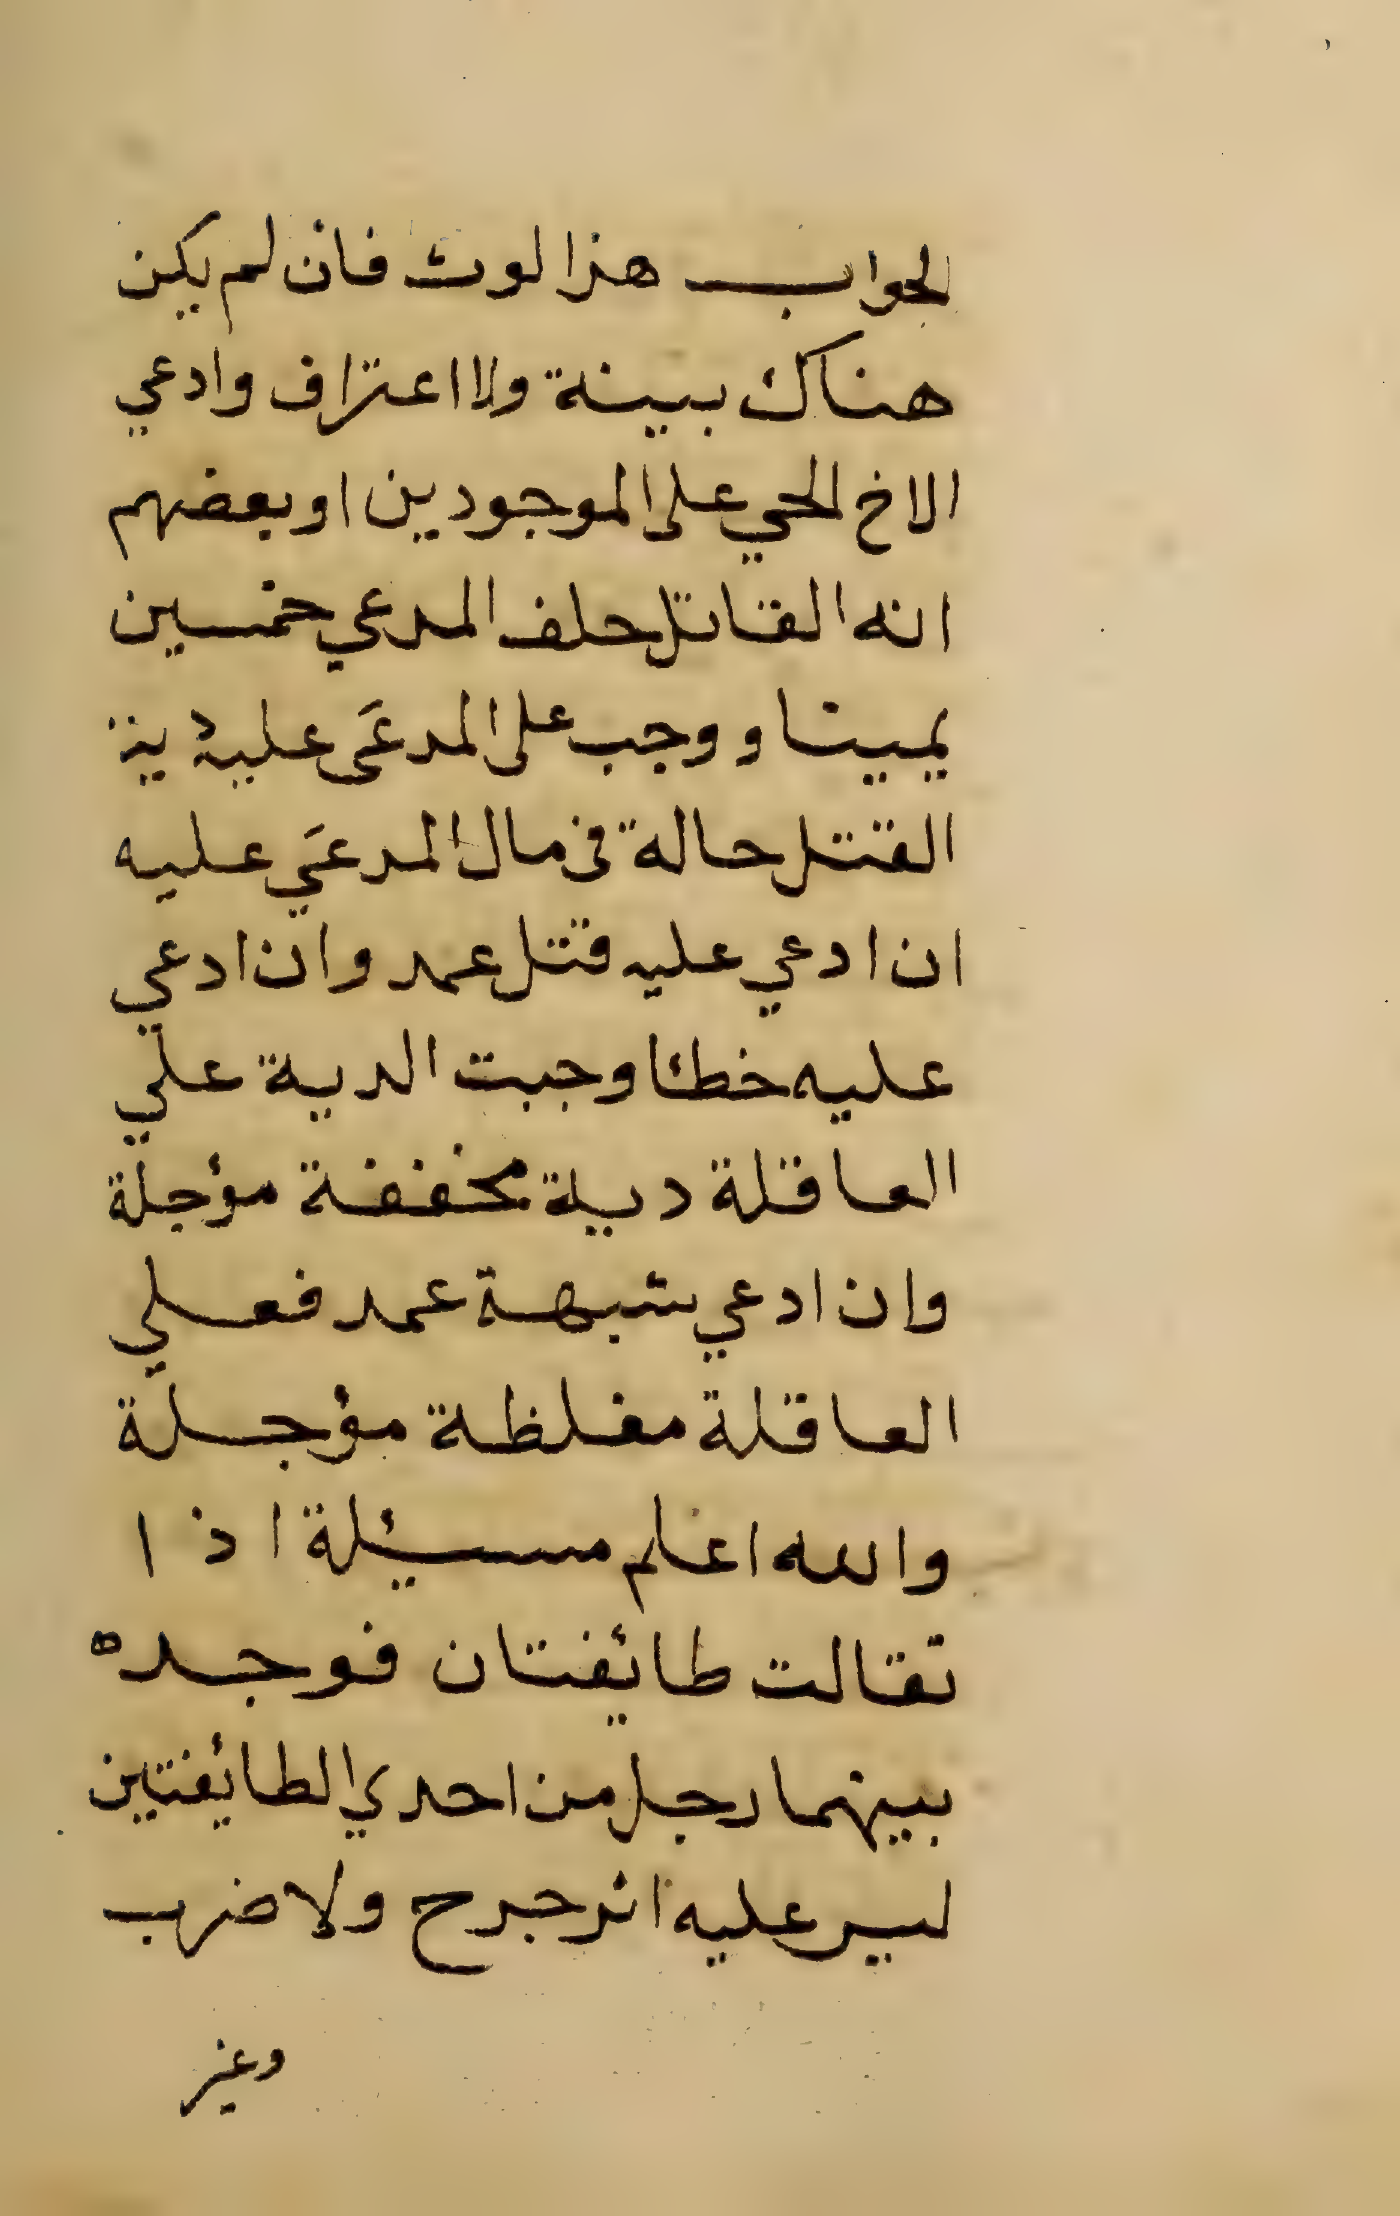 الجواب هذا لوث فان لم يكن
هناك ببينة ولا اعتراف وادعي
الاخ الحي على الموجودين او بعضهم
انه القاتل حلف المدعي خمسين
يمينا و وجب على المدعَى عليه دية
القتل حالة في مال المدعَي عليه
ان ادعي عليه قتل عمد وان ادعي
عليه خطئا وجبت الدية علي
العاقلة دية مخففة مؤجلة
وان ادعي شبهة عمد فعلي
العاقلة مغلظة مؤجلة
والله اعلم مسئلة اذا
تقالت طائفتان فوجد ه
بينهما رجل من احدي الطائفتين
ليس عليه اثر جرح ولا ضرب
وغير